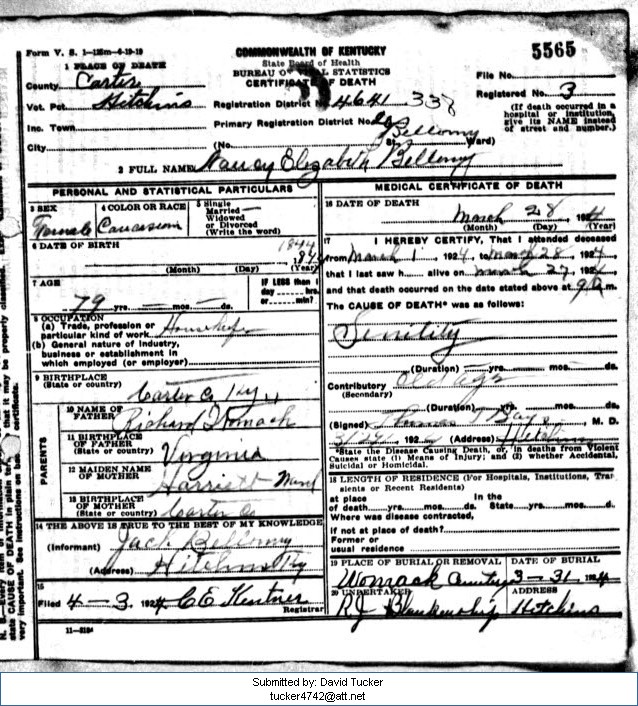 Form V. S. 1-125m-6-19-19
COMMONWEALTH OF KENTUCKY
State Board of Health
BUREAU OF VITAL STATISTICS
CERTIFICATE OF DEATH
5565
1 PLACE OF DEATH
County Carter
Vot. Pct. Hitchins
Inc. Town
City
Registration District No. 4641 338
Primary Registration District No.
(No. St. Ward)
File No.
Registered No. 3
(If death occurred in a hospital or institution, give its NAME instead of street and number.)
2 FULL NAME Nancy Elizabeth Bellomy
PERSONAL AND STATISTICAL PARTICULARS
3 SEX
Female
4 COLOR OR RACE
Caucasion
5 Single
Married
Widowed
or Divorced
(Write the word)
6 DATE OF BIRTH
1844
(Month) (Day) (Year)
7 AGE
79 yrs. mos. ds.
IF LESS than 1
day hrs.
or min?
8 OCCUPATION
(a) Trade, profession or
particular kind of work
(b) General nature of Industry,
business or establishment in
which employed (or employer)
9 BIRTHPLACE
(State or country)
Carter Co Ky
PARENTS
10 NAME OF
FATHER
Richard Womack
11 BIRTHPLACE
OF FATHER
(State or country)
Virginia
12 MAIDEN NAME
OF MOTHER
Harriett
13 BIRTHPLACE
OF MOTHER
(State or country)
Carter Co
14 THE ABOVE IS TRUE TO THE BEST OF MY KNOWLEDGE
(Informant) Jack Bellomy
(Address) Hitchins Ky
15
Filed 4-3 1924 C E
Registrar
11-3184
MEDICAL CERTIFICATE OF DEATH
16 DATE OF DEATH
March 28 1924
(Month) (Day) (Year)
17 I HEREBY CERTIFY, That I attended deceased
from March 1 1924, to March 28 1924,
that I last saw h alive on March 27 192
and that death occurred on the date stated above at 9 a m.
The CAUSE OF DEATH* was as follows:
Senility
(Duration) yrs. mos. ds.
Contributory Old age
(Secondary)
(Duration) yrs. mos. ds.
(Signed) M. D.
192 (Address) Hitchins
*State the Disease Causing Death, or, in deaths from Violent
Causes state (1) Means of Injury; and (2) whether Accidental,
Suicidal or Homicidal.
18 LENGTH OF RESIDENCE (For Hospitals, Institutions, Transients or Recent Residents)
At place In the
of death yrs. mos. ds. State yrs. mos. d.
Where was disease contracted,
if not at place of death?
Former or
usual residence
19 PLACE OF BURIAL OR REMOVAL
Womack
DATE OF BURIAL
3-31 1924
20 UNDERTAKER
R J Blankenship
ADDRESS
Hitchins
Submitted by: David Tucker
tucker4742@att.net